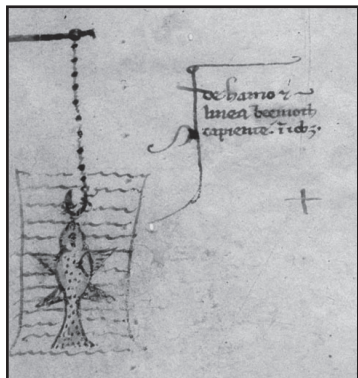 de hamo ⁊
linea beemoth
capiente. ī iob